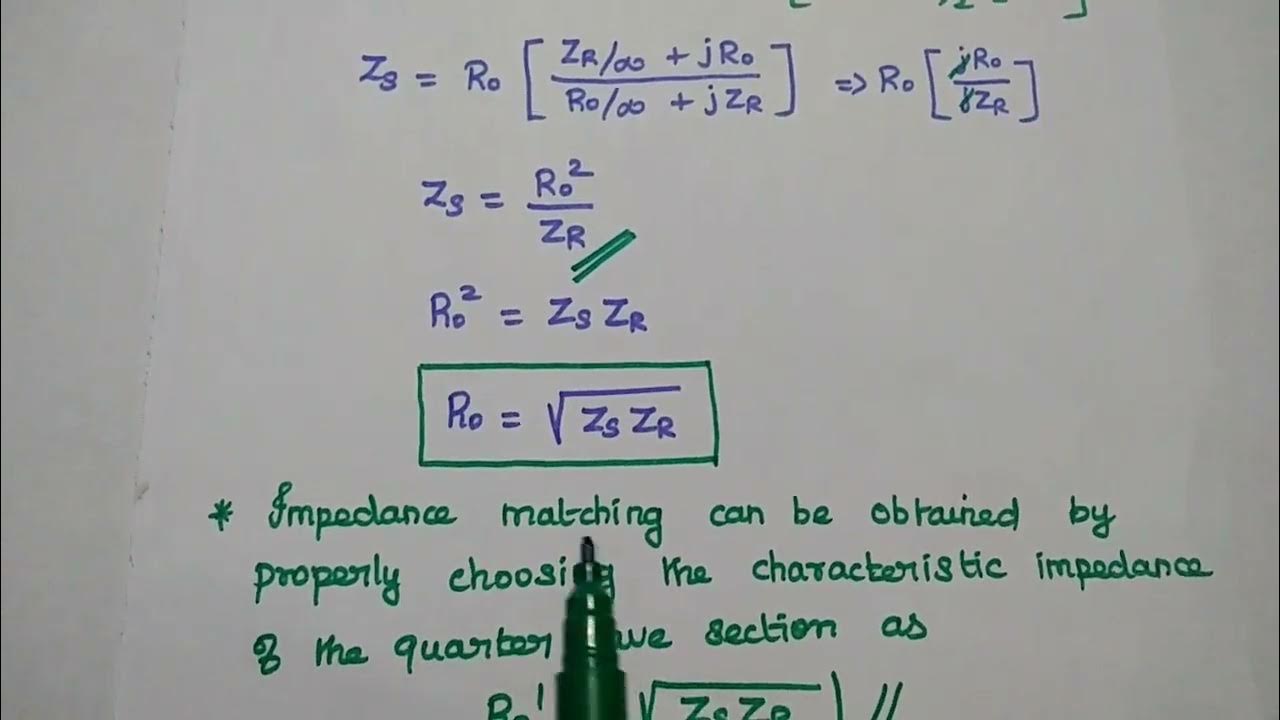 Zs = Ro [ ZR/∞ + jRo / Ro/∞ + jZR ] => Ro [ jRo / jZR ]
Zs = Ro² / ZR
Ro² = Zs ZR
Ro = √Zs ZR
* Impedance matching can be obtained by
properly choosing the characteristic impedance
of the quarter section as
Ro' √Zs ZR | //